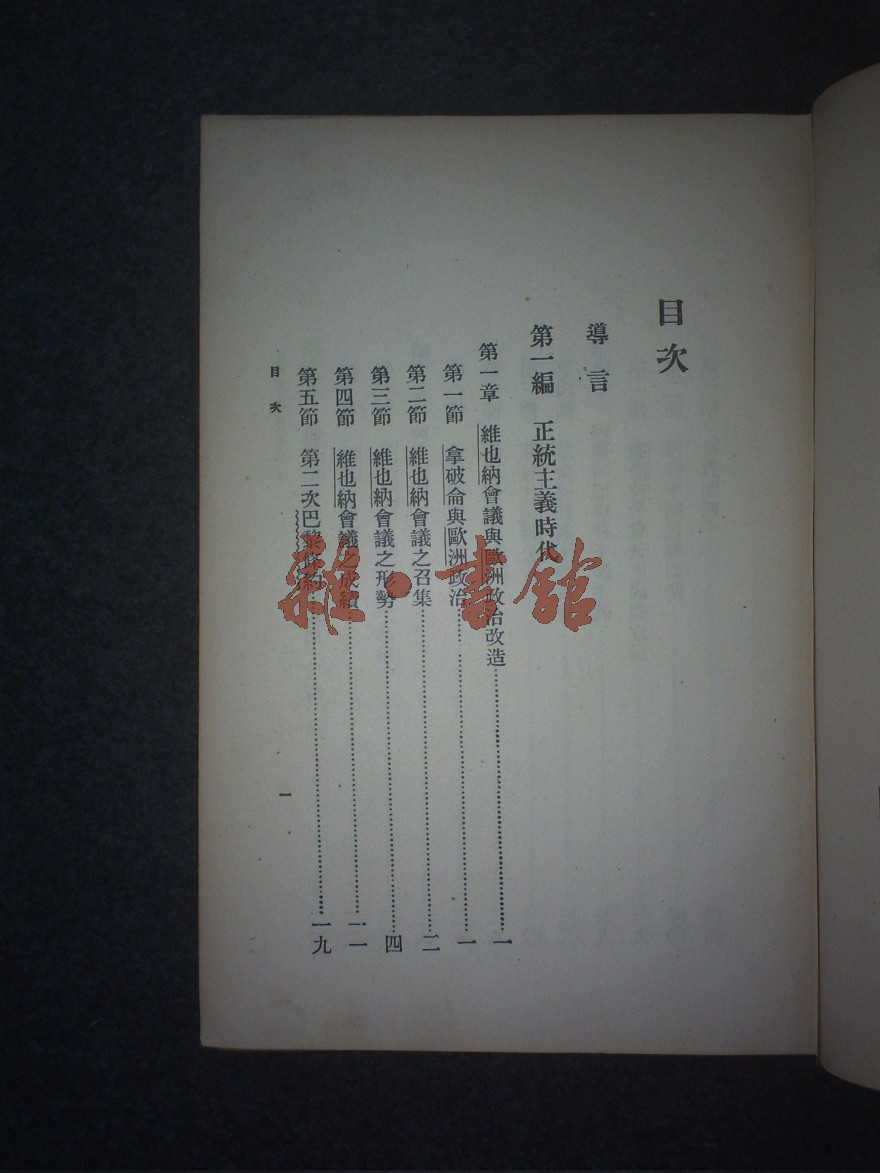 目次
導言
第一編 正統主義時代
第一章 維也納會議與歐洲政治改造……一
第一節 拿破侖與歐洲政治……一
第二節 維也納會議之召集……二
第三節 維也納會議之形勢……四
第四節 維也納會議之成績……一一
第五節 第二次巴黎條約……一九
目次
一
雜·書館